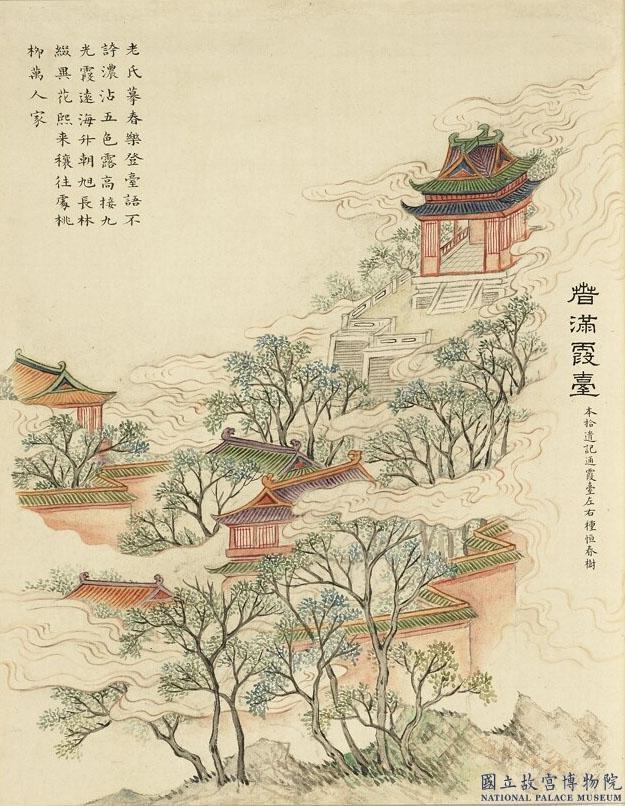 春滿霞臺
本拾遺記通霞臺左右種恒春樹
老氏摹春樂登臺語不
誇濃沾五色露高接九
光霞遠海升朝旭長林
綴異花熙来穰往處桃
柳萬人家
國立故宮博物院
NATIONAL PALACE MUSEUM